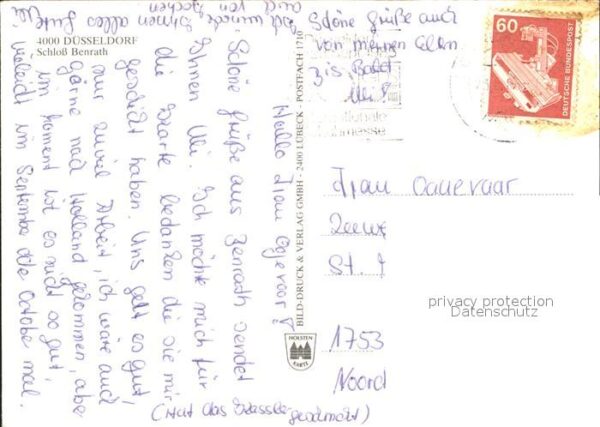 4000 DÜSSELDORF
Schloß Benrath
BILD-DRUCK & VERLAG GMBH - 2400 LÜBECK - POSTFACH 1710
HOLSTEN
KARTE
60
DEUTSCHE BUNDESPOST
Hallo Frau
Schöne Grüße aus Benrath sendet
Ihnen Uli. Ich möchte mich für
die Karte bedanken die sie mir
geschickt haben. Uns geht es gut,
nur zuviel Arbeit, ich wäre auch
gerne nach Holland gekommen, aber
im moment ist es nicht so gut,
vielleicht im September oder Octobe mal.
Ich wünsche Ihnen alles gute
auch von Jochen
Schöne Grüße auch
von meinen Eltern
bis Bald
Uli
(Hat das geschmeckt)
Frau
St.
1753
Noord
privacy protection
Datenschutz